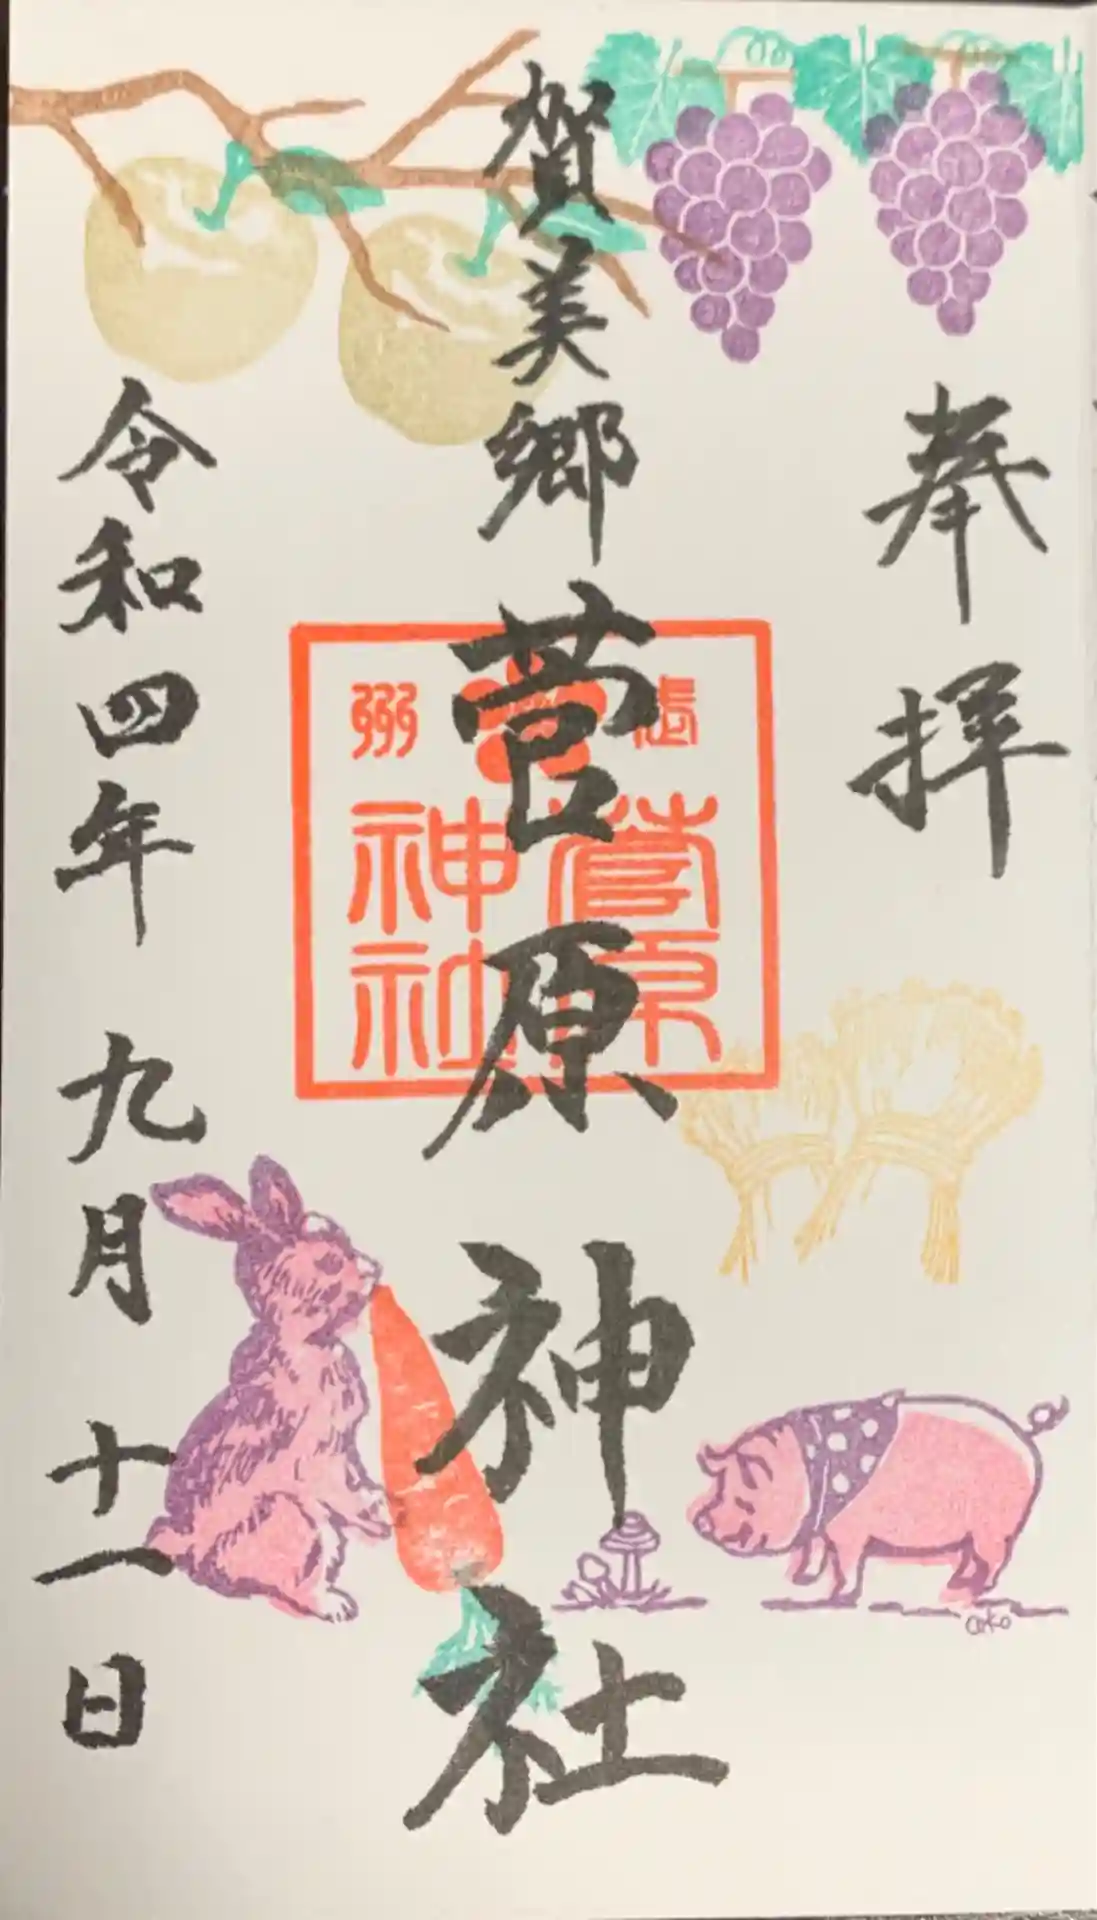 奉拝
賀美郷
菅原神社
武州
菅原
神社
令和四年 九月 十一日